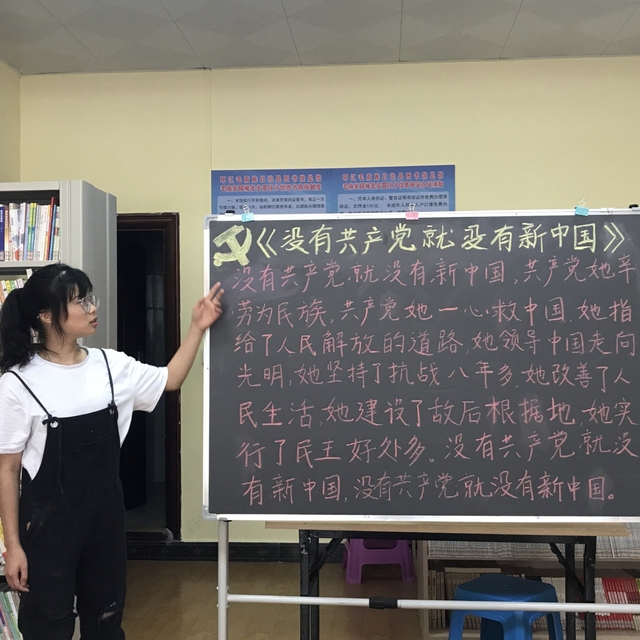 环江毛南族自治县图书馆总馆 环江毛南族自治县图书馆总馆
《没有共产党就没有新中国》
没有共产党就没有新中国,共产党她辛
劳为民族,共产党她一心救中国,她指
给了人民解放的道路,她领导中国走向
光明,她坚持了抗战八年多,她改善了人
民生活,她建设了敌后根据地,她实
行了民主好处多。没有共产党就没
有新中国,没有共产党就没有新中国。